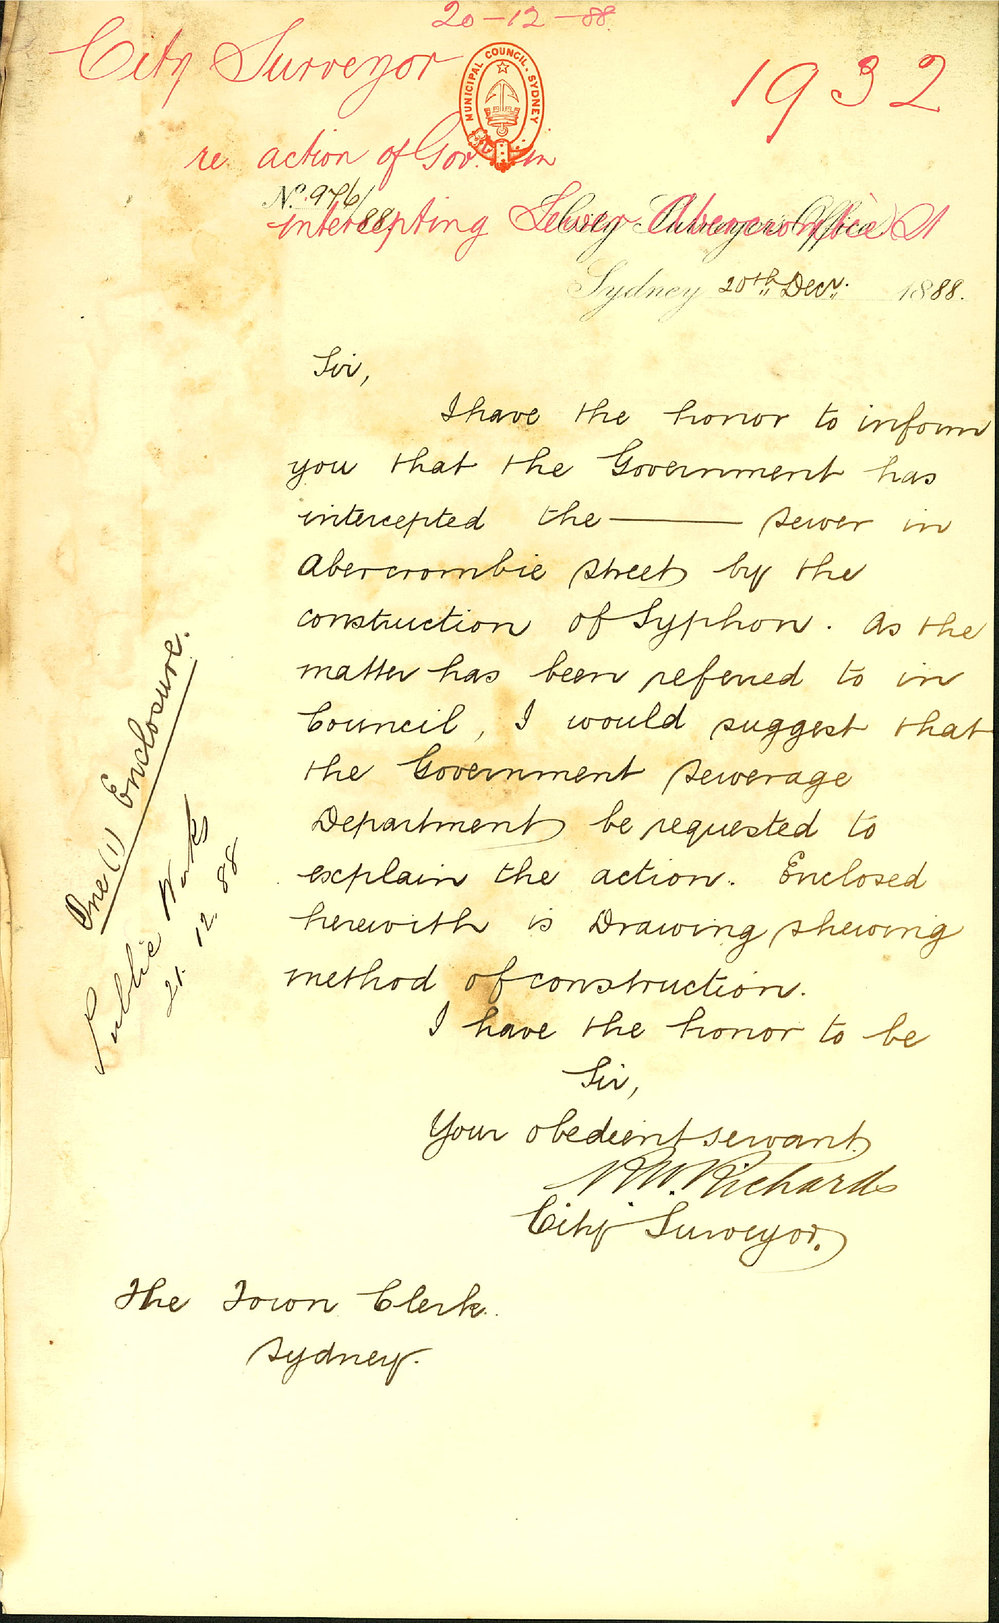 20-12-88.
City Surveyor
1932
MUNICIPAL COUNCIL. SYDNEY
re action of Gov. in
No. 976/88
intercepting Sewer Abercrombie St
City Surveyor's Office
Sydney 20th Decr. 1888.
Sir,
I have the honor to inform
you that the Government has
intercepted the ——— sewer in
Abercrombie Street by the
construction of Syphon. As the
matter has been referred to in
Council, I would suggest that
the Government Sewerage
Department be requested to
explain the action. Enclosed
herewith is Drawing shewing
method of construction.
I have the honor to be
Sir,
Your obedient servant.
Richards
City Surveyor.
The Town Clerk.
Sydney.
One (1) Enclosure.
Public Works
21.12.88